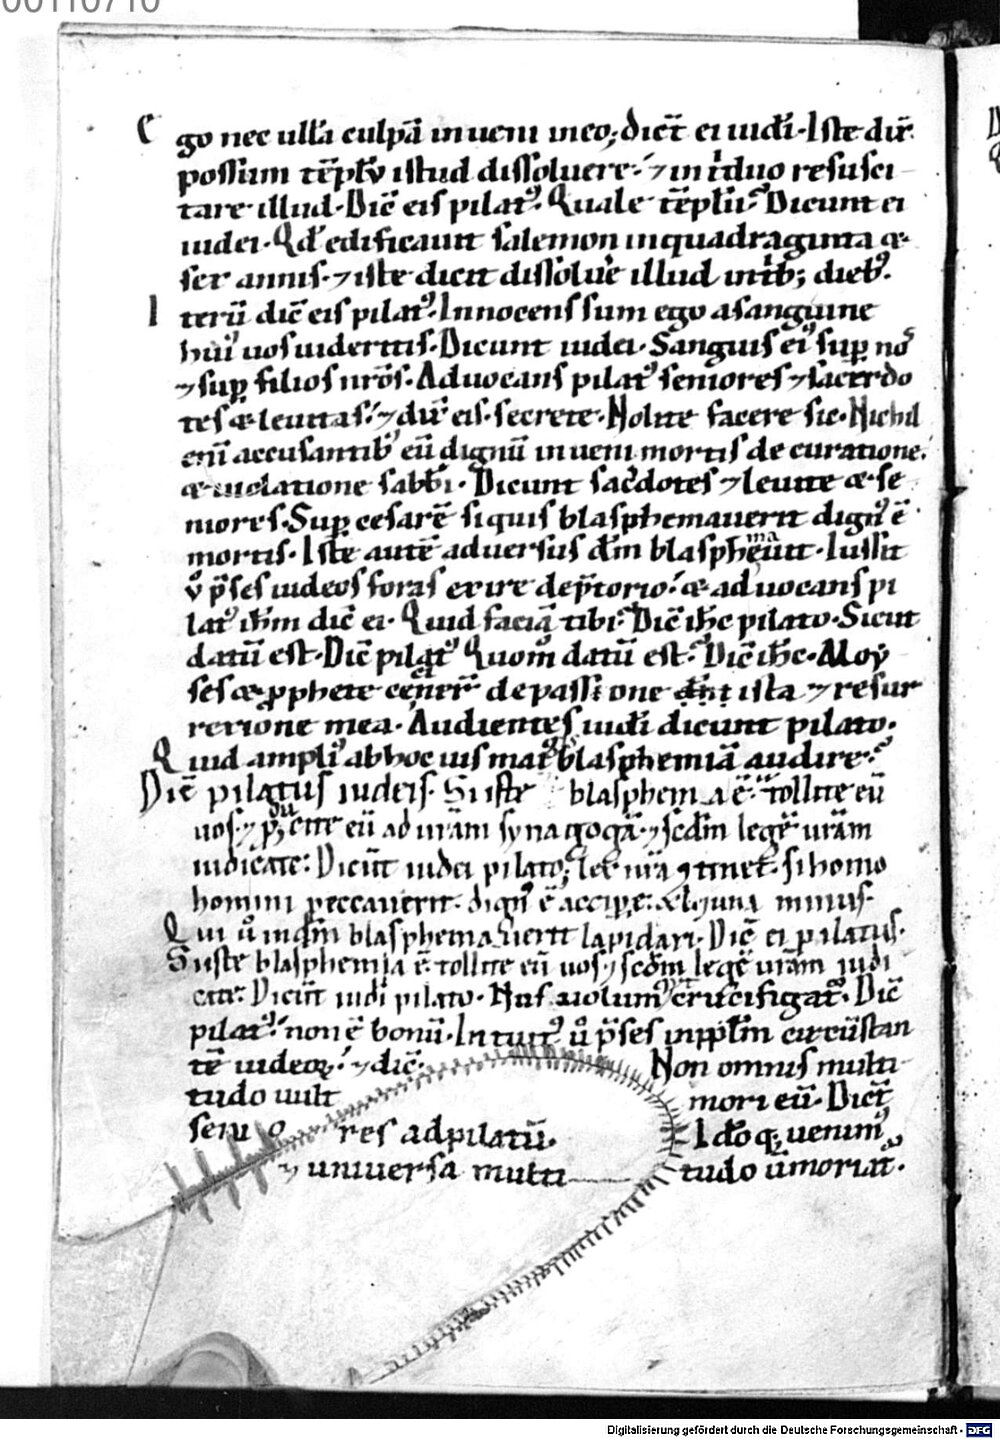 00110710
Ego nec ullā culpā inueni in eo; dict̄ ei iudi. Iste dix̄
possum tēplū istud dissoluere. ⁊ in tduo resusci
tare illud. Dic̄ eis pilat᷒. Quale tēplū. Dicunt ei
iudei. Qd̄ edificauit salemon in quadraginta æ
sex annis. ⁊ iste dicit dissolue illud in trib; dieb᷒.
Iterū dic̄ eis pilat᷒. Innocens sum ego a sanguine
hui᷒ uos uideritis. Dicunt iudei. Sanguis ei᷒ sup nos
⁊ sup filios nr̄os. Aduocans pilat᷒ seniores ⁊ sacerdo
tes æ leuitas. ⁊ dix̄ eis. secrete. Nolite facere sic. Nichil
eni accusantib᷒ eū dignū inueni mortis de curatione.
æ uiolatione sabbi. Dicunt sac̄dotes ⁊ leuite æ se
niores. Sup cesarē siquis blasphemauerit dign᷒ ē
mortis. Iste autē aduersus dm̄ blasphemauit. Iussit
ū p̄ses iudeos foras exire de p̄torio. æ aduocans pi
lat᷒ ihm̄ dic̄ ei. Quid faciā tibi. Dic̄ ihc̄ pilato. Sicut
datū est. Dic̄ pilat᷒ Quom̄ datū est. Dic̄ ihc̄. Moy
ses æ pphete de passione ista ⁊ resur
rexione mea. Audientes iudi dicunt pilato.
Quid ampli᷒ ab hoc uis blasphemiā audire.
Dic̄ pilatus iudeis. Si iste blasphemia ē. tollite eū
uos. ⁊ pducite eū ad urām synagogā. ⁊ scdm̄ legē urām
iudicate. Dicūt iudei pilato; lex nr̄a ꝯtinet. si homo
homini peccauerit. dign᷒ ē accipe. minus.
Qui ū in dm̄ blasphemauerit lapidari. Dic̄ ei pilatus.
Si iste blasphemia ē. tollite eū uos. ⁊ scdm̄ legē urām iudi
cate. Dicūt iudi pilato. Nos uolum᷒ crucifigat. Dic̄
pilat᷒. non ē bonū. Intuit᷒ ū p̄ses in pplm̄ circūstan
tē iudeoꝝ. ⁊ dic̄. Non omnis multi
tudo uult mori eū. Dict̄
seniores ad pilatū. Ido q; uenim᷒
⁊ uniuersa multitudo ū moriat᷒.
Digitalisierung gefördert durch die Deutsche Forschungsgemeinschaft - DFG